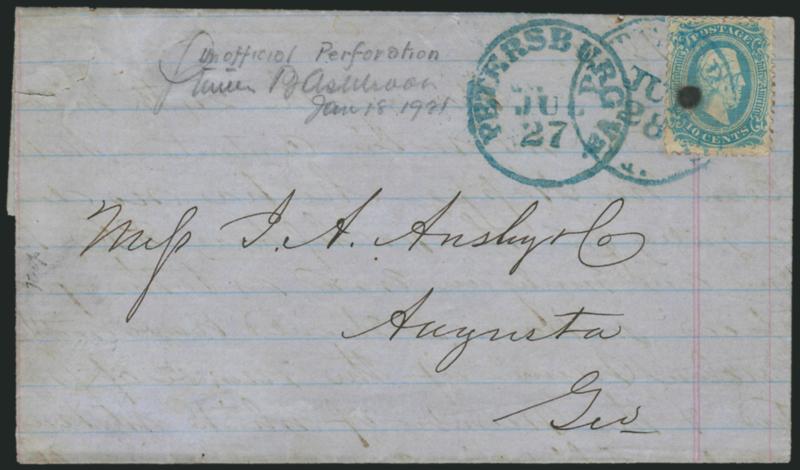 Unofficial Perforation
Jan 18 1921
PETERSBURG VA.
JUL
27
PETERSBURG
JUL
28
POSTAGE
10 CENTS
Mess J. A. Ansley & Co
Augusta
Geo